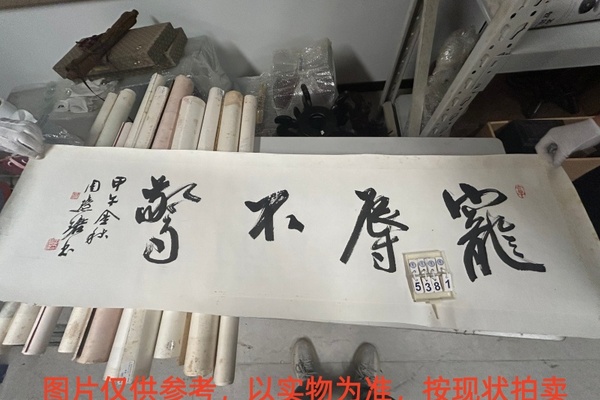 寵辱不驚
甲午金秋
5381
图片仅供参考，以实物为准，按现状拍卖